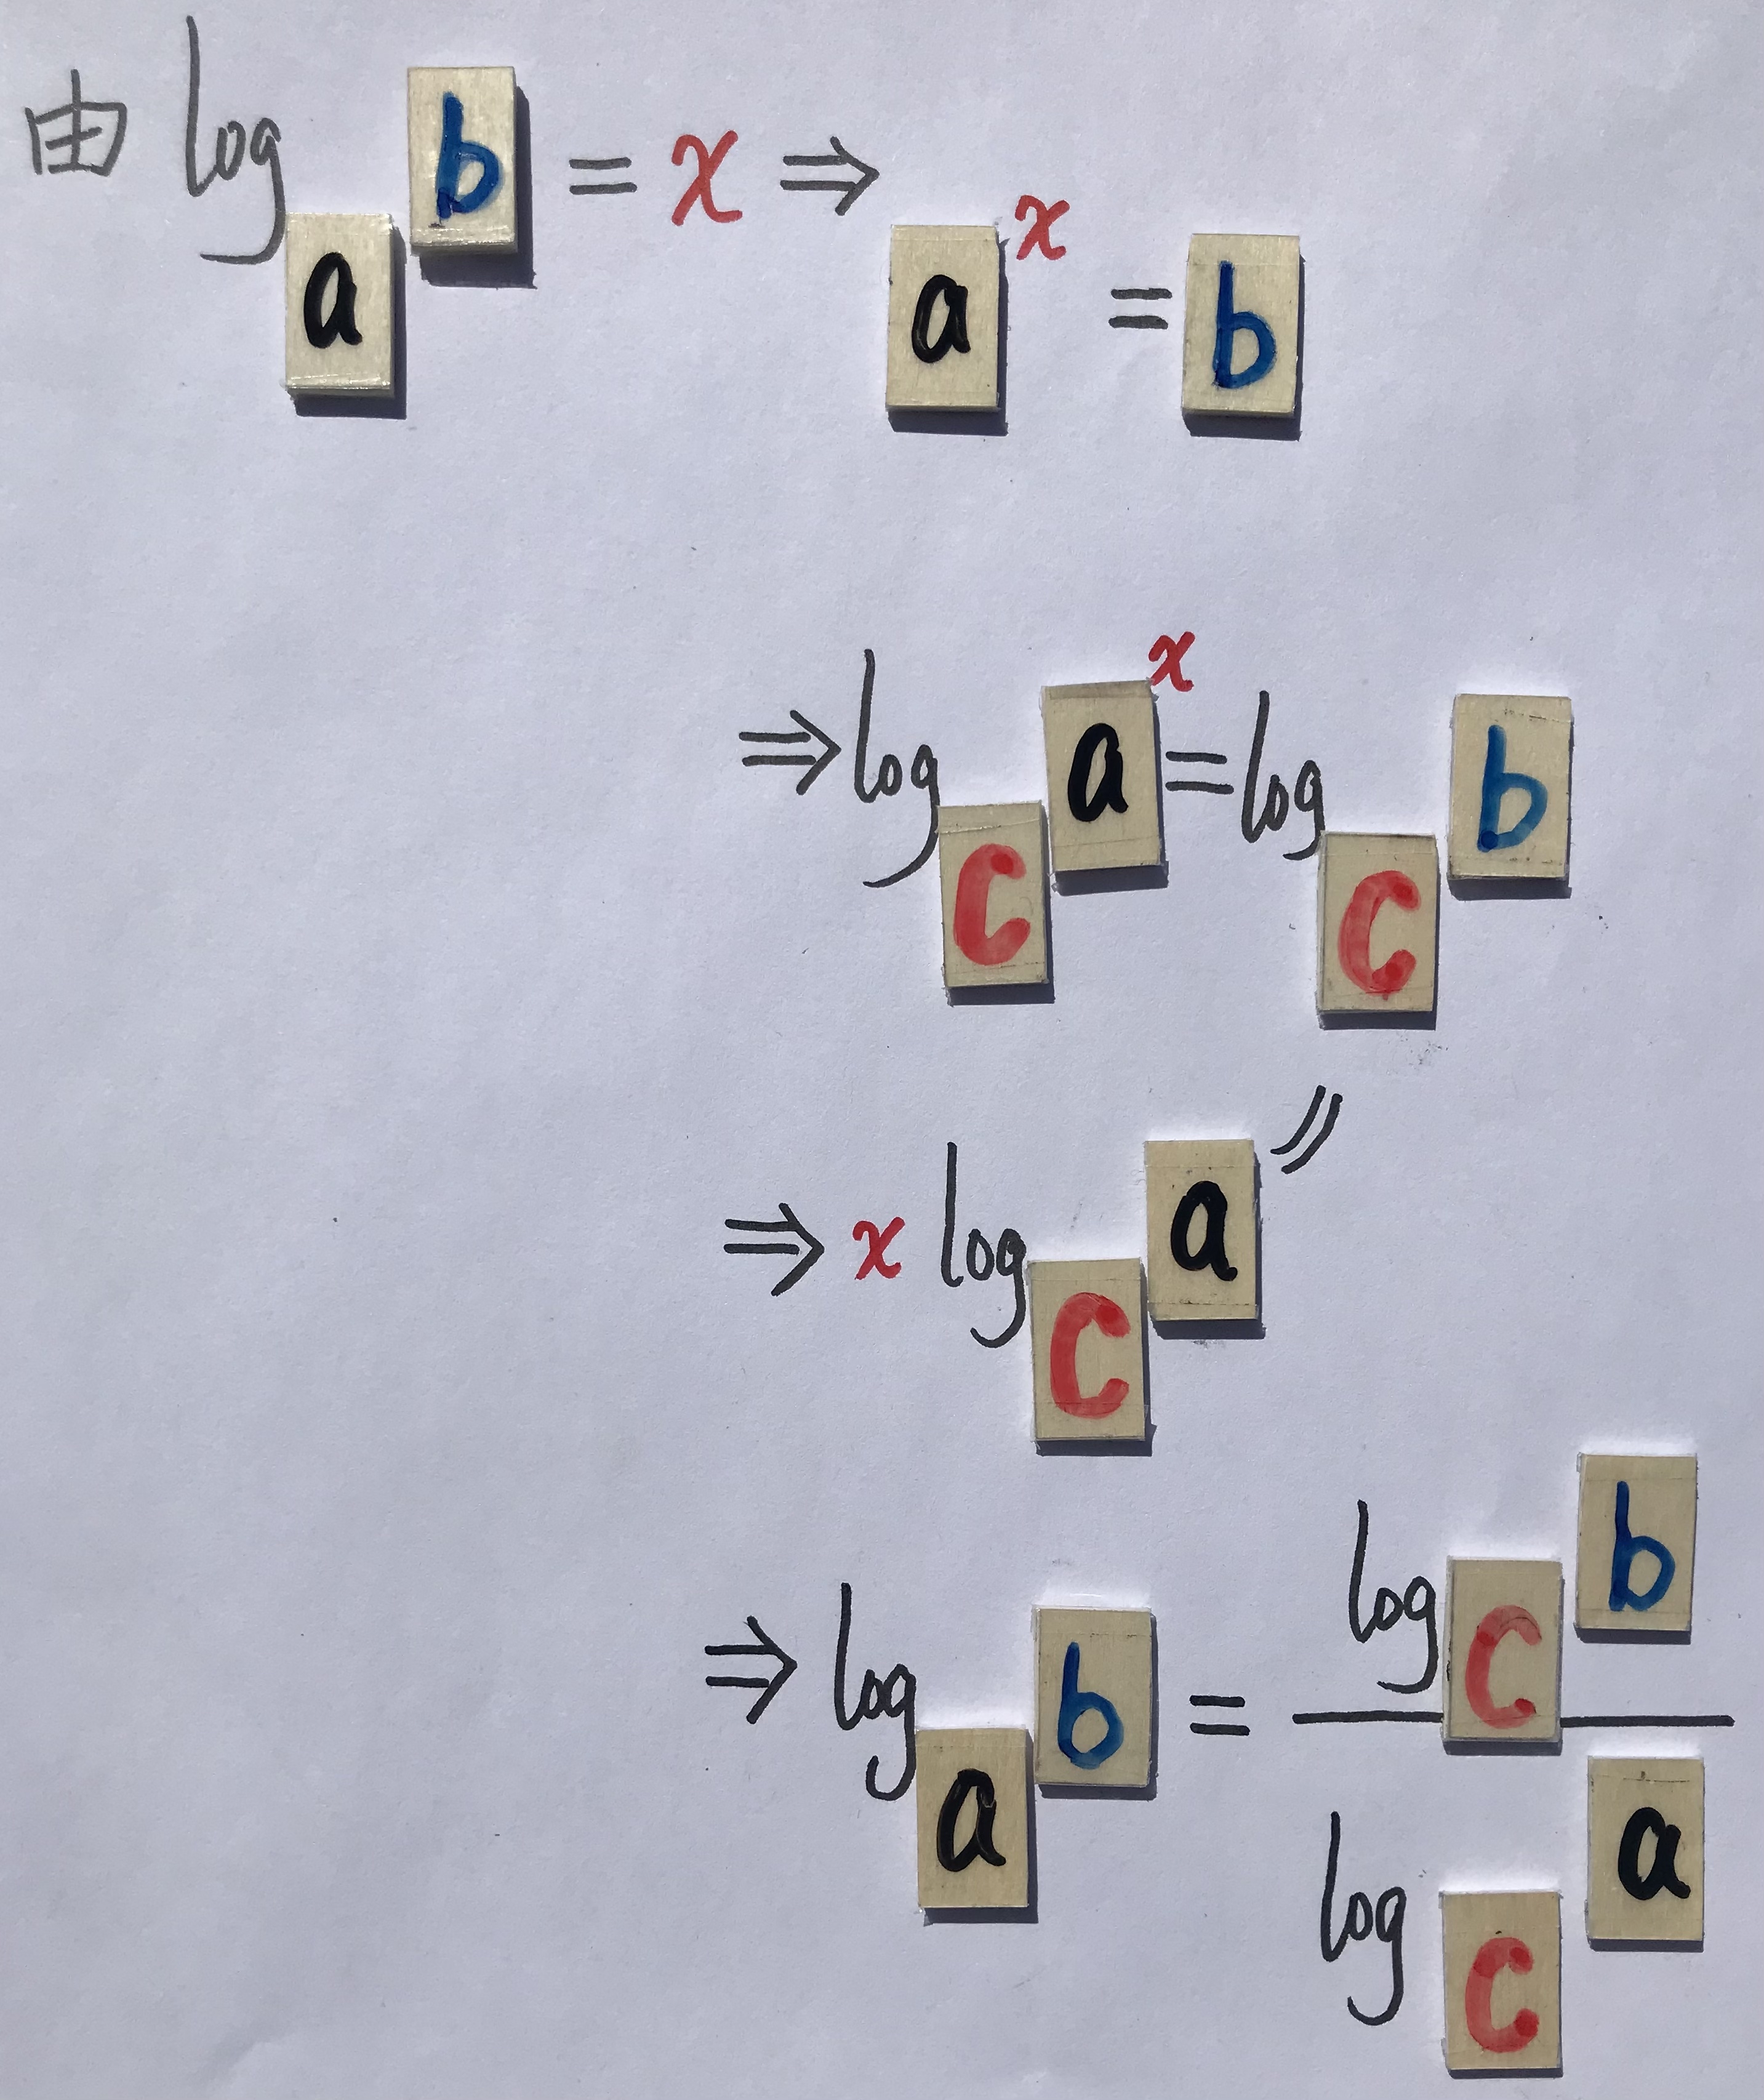 由 log_a b = x ⇒ a^x = b
⇒ log_c a^x = log_c b
⇒ x log_c a //
⇒ log_a b = log_c b / log_c a